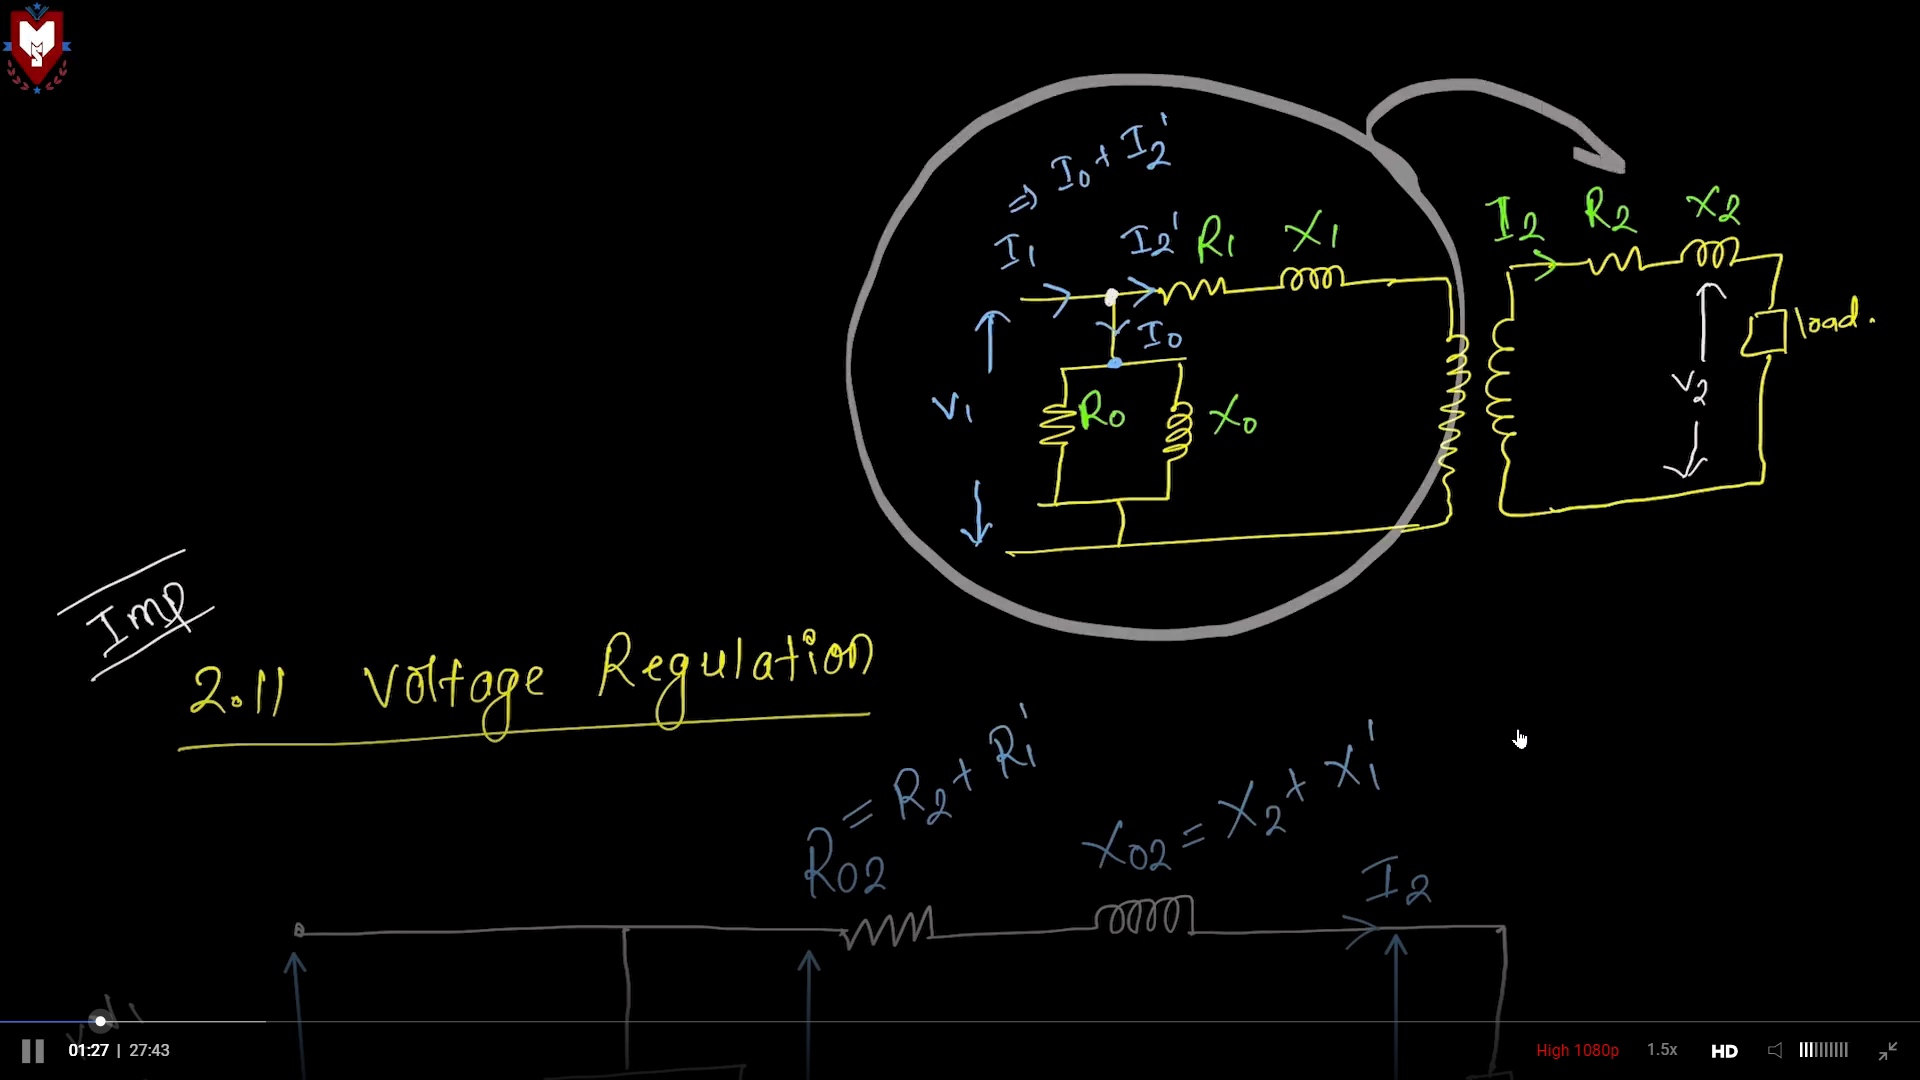 ⇒ I₀ + I₂'
I₁ I₂' R₁ X₁ I₂ R₂ X₂
I₀
load.
V₁ R₀ X₀ V₂
Imp
2.11 Voltage Regulation
R₀₂ = R₂ + R₁'
X₀₂ = X₂ + X₁'
I₂
01:27 | 27:43 High 1080p 1.5x HD